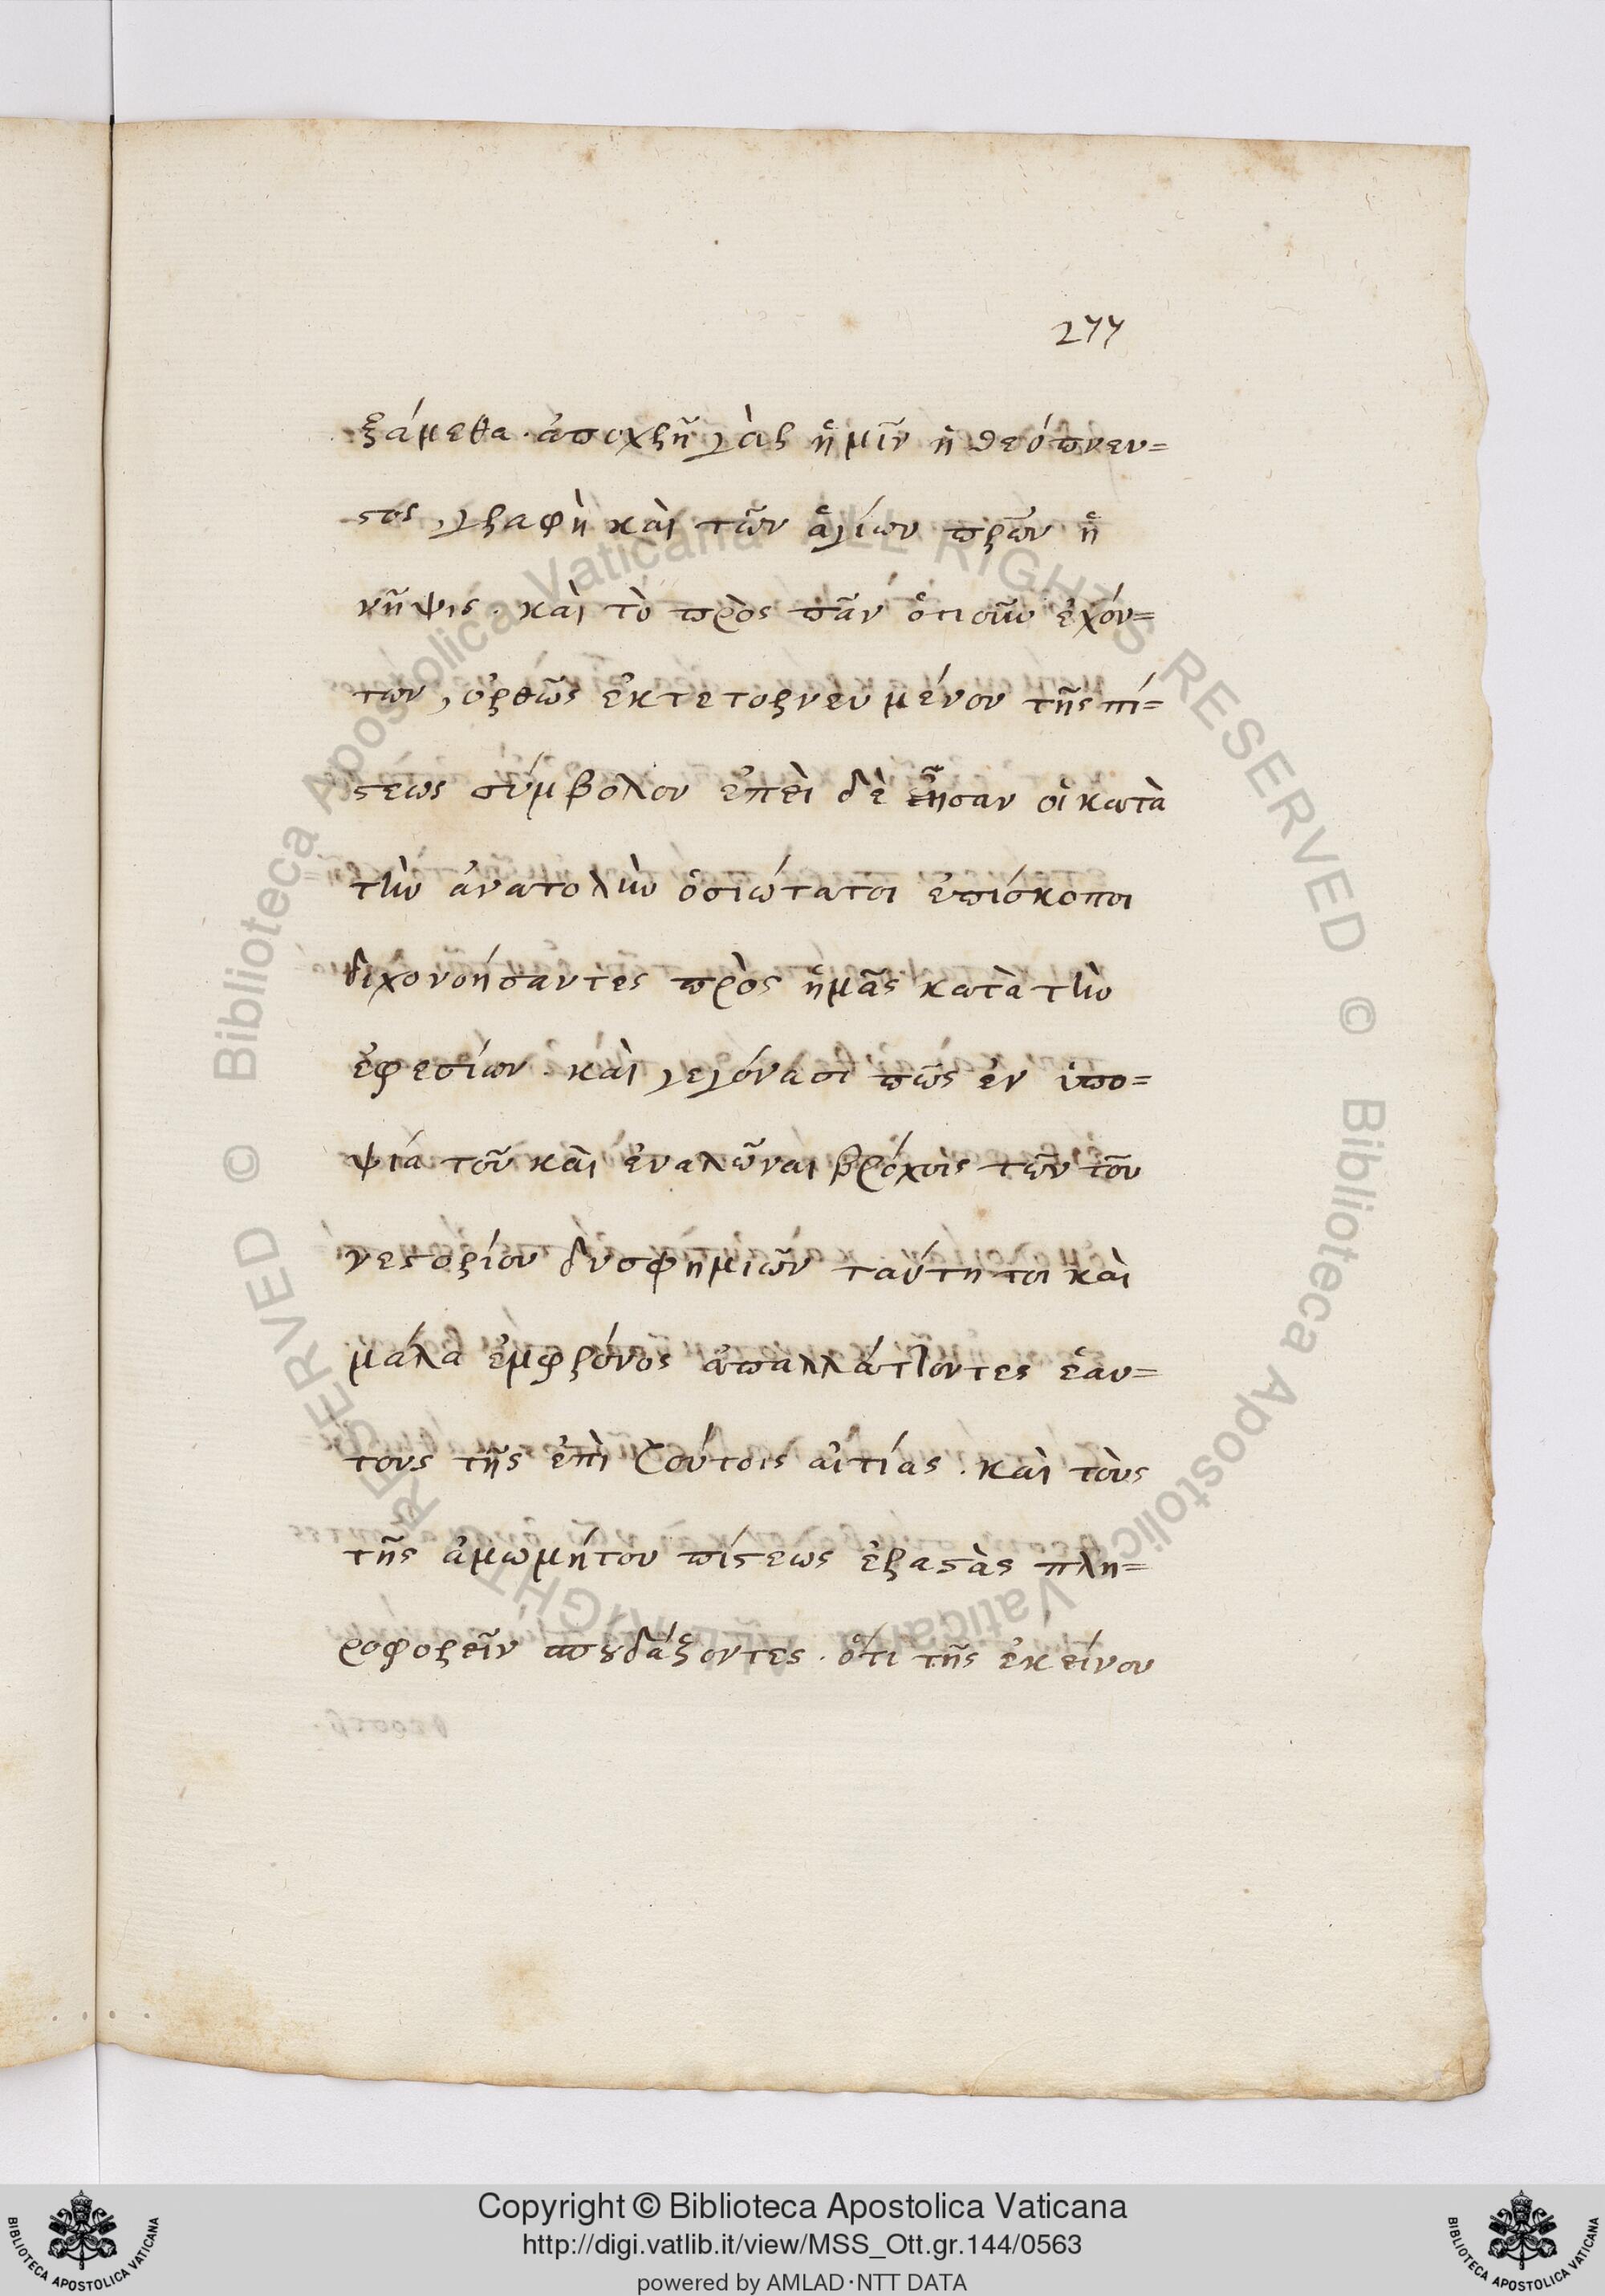 277
ξάμεθα. ἀποχρῆ γὰρ ἡμῖν ἡ θεόπνευ=
στος γραφὴ καὶ τῶν ἁγίων πρων ἡ
νῆψις. καὶ τὸ πρὸς πᾶν ὁτιοῦν ἐχόν=
των, ὀρθῶς ἐκτετορνευμένον τῆς πί=
στεως σύμβολον ἐπεὶ δὲ ἦσαν οἱ κατὰ
τὴν ἀνατολὴν ὁσιώτατοι ἐπίσκοποι
διχονοήσαντες πρὸς ἡμᾶς κατὰ τὴν
ἐφεσίων. καὶ γεγόνασι πῶς ἐν ὑπο=
ψία τοῦ καὶ ἐναλῶναι βρόχοις τῶν τοῦ
νεστορίου δυσφημιῶν ταύτη τοι καὶ
μάλα ἐμφρόνος ἀπαλλάττοντες ἑαυ=
τους τῆς ἐπὶ τούτοις αἰτίας. καὶ τοὺς
τῆς ἀμωμήτου πίστεως ἐραστὰς πλη=
ροφορεῖν σπουδάζοντες. ὅτι τῆς ἐκείνου
© Biblioteca Apostolica Vaticana ALL RIGHTS RESERVED © Biblioteca Apostolica Vaticana ALL RIGHTS RESERVED
BIBLIOTECA APOSTOLICA VATICANA
Copyright © Biblioteca Apostolica Vaticana
http://digi.vatlib.it/view/MSS_Ott.gr.144/0563
powered by AMLAD·NTT DATA
BIBLIOTECA APOSTOLICA VATICANA